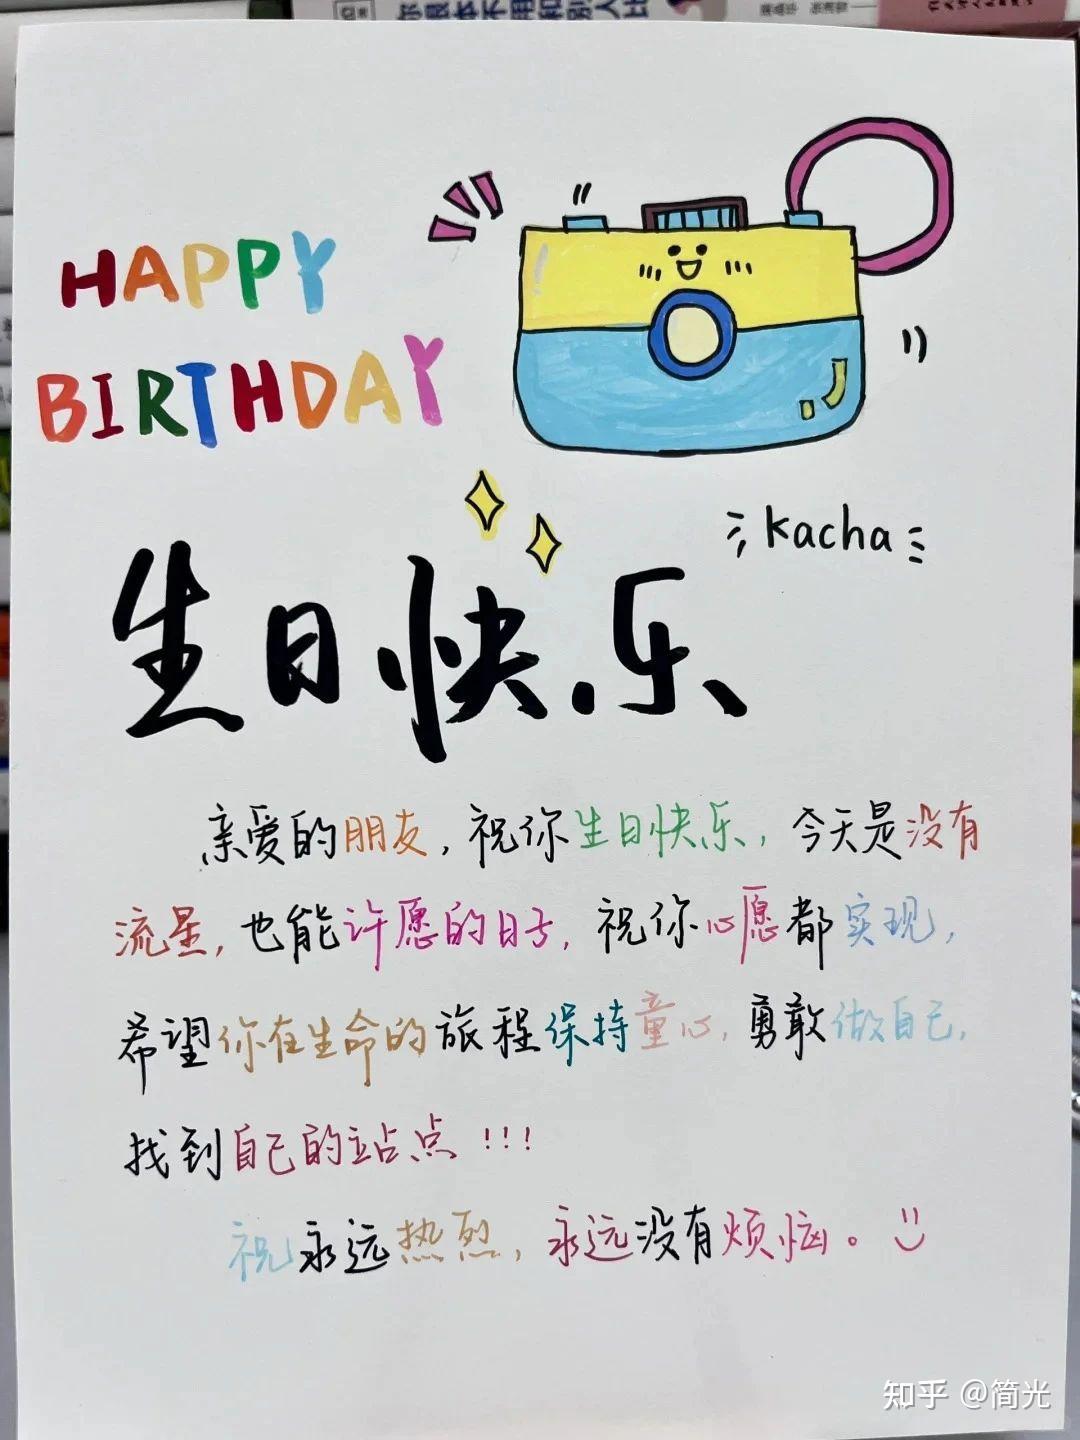 你根本不用
和别人比
HAPPY
BIRTHDAY
Kacha
生日快乐
亲爱的朋友，祝你生日快乐，今天是没有
流星，也能许愿的日子，祝你心愿都实现，
希望你在生命的旅程保持童心，勇敢做自己，
找到自己的站点!!!
祝永远热烈，永远没有烦恼。
知乎 @简光